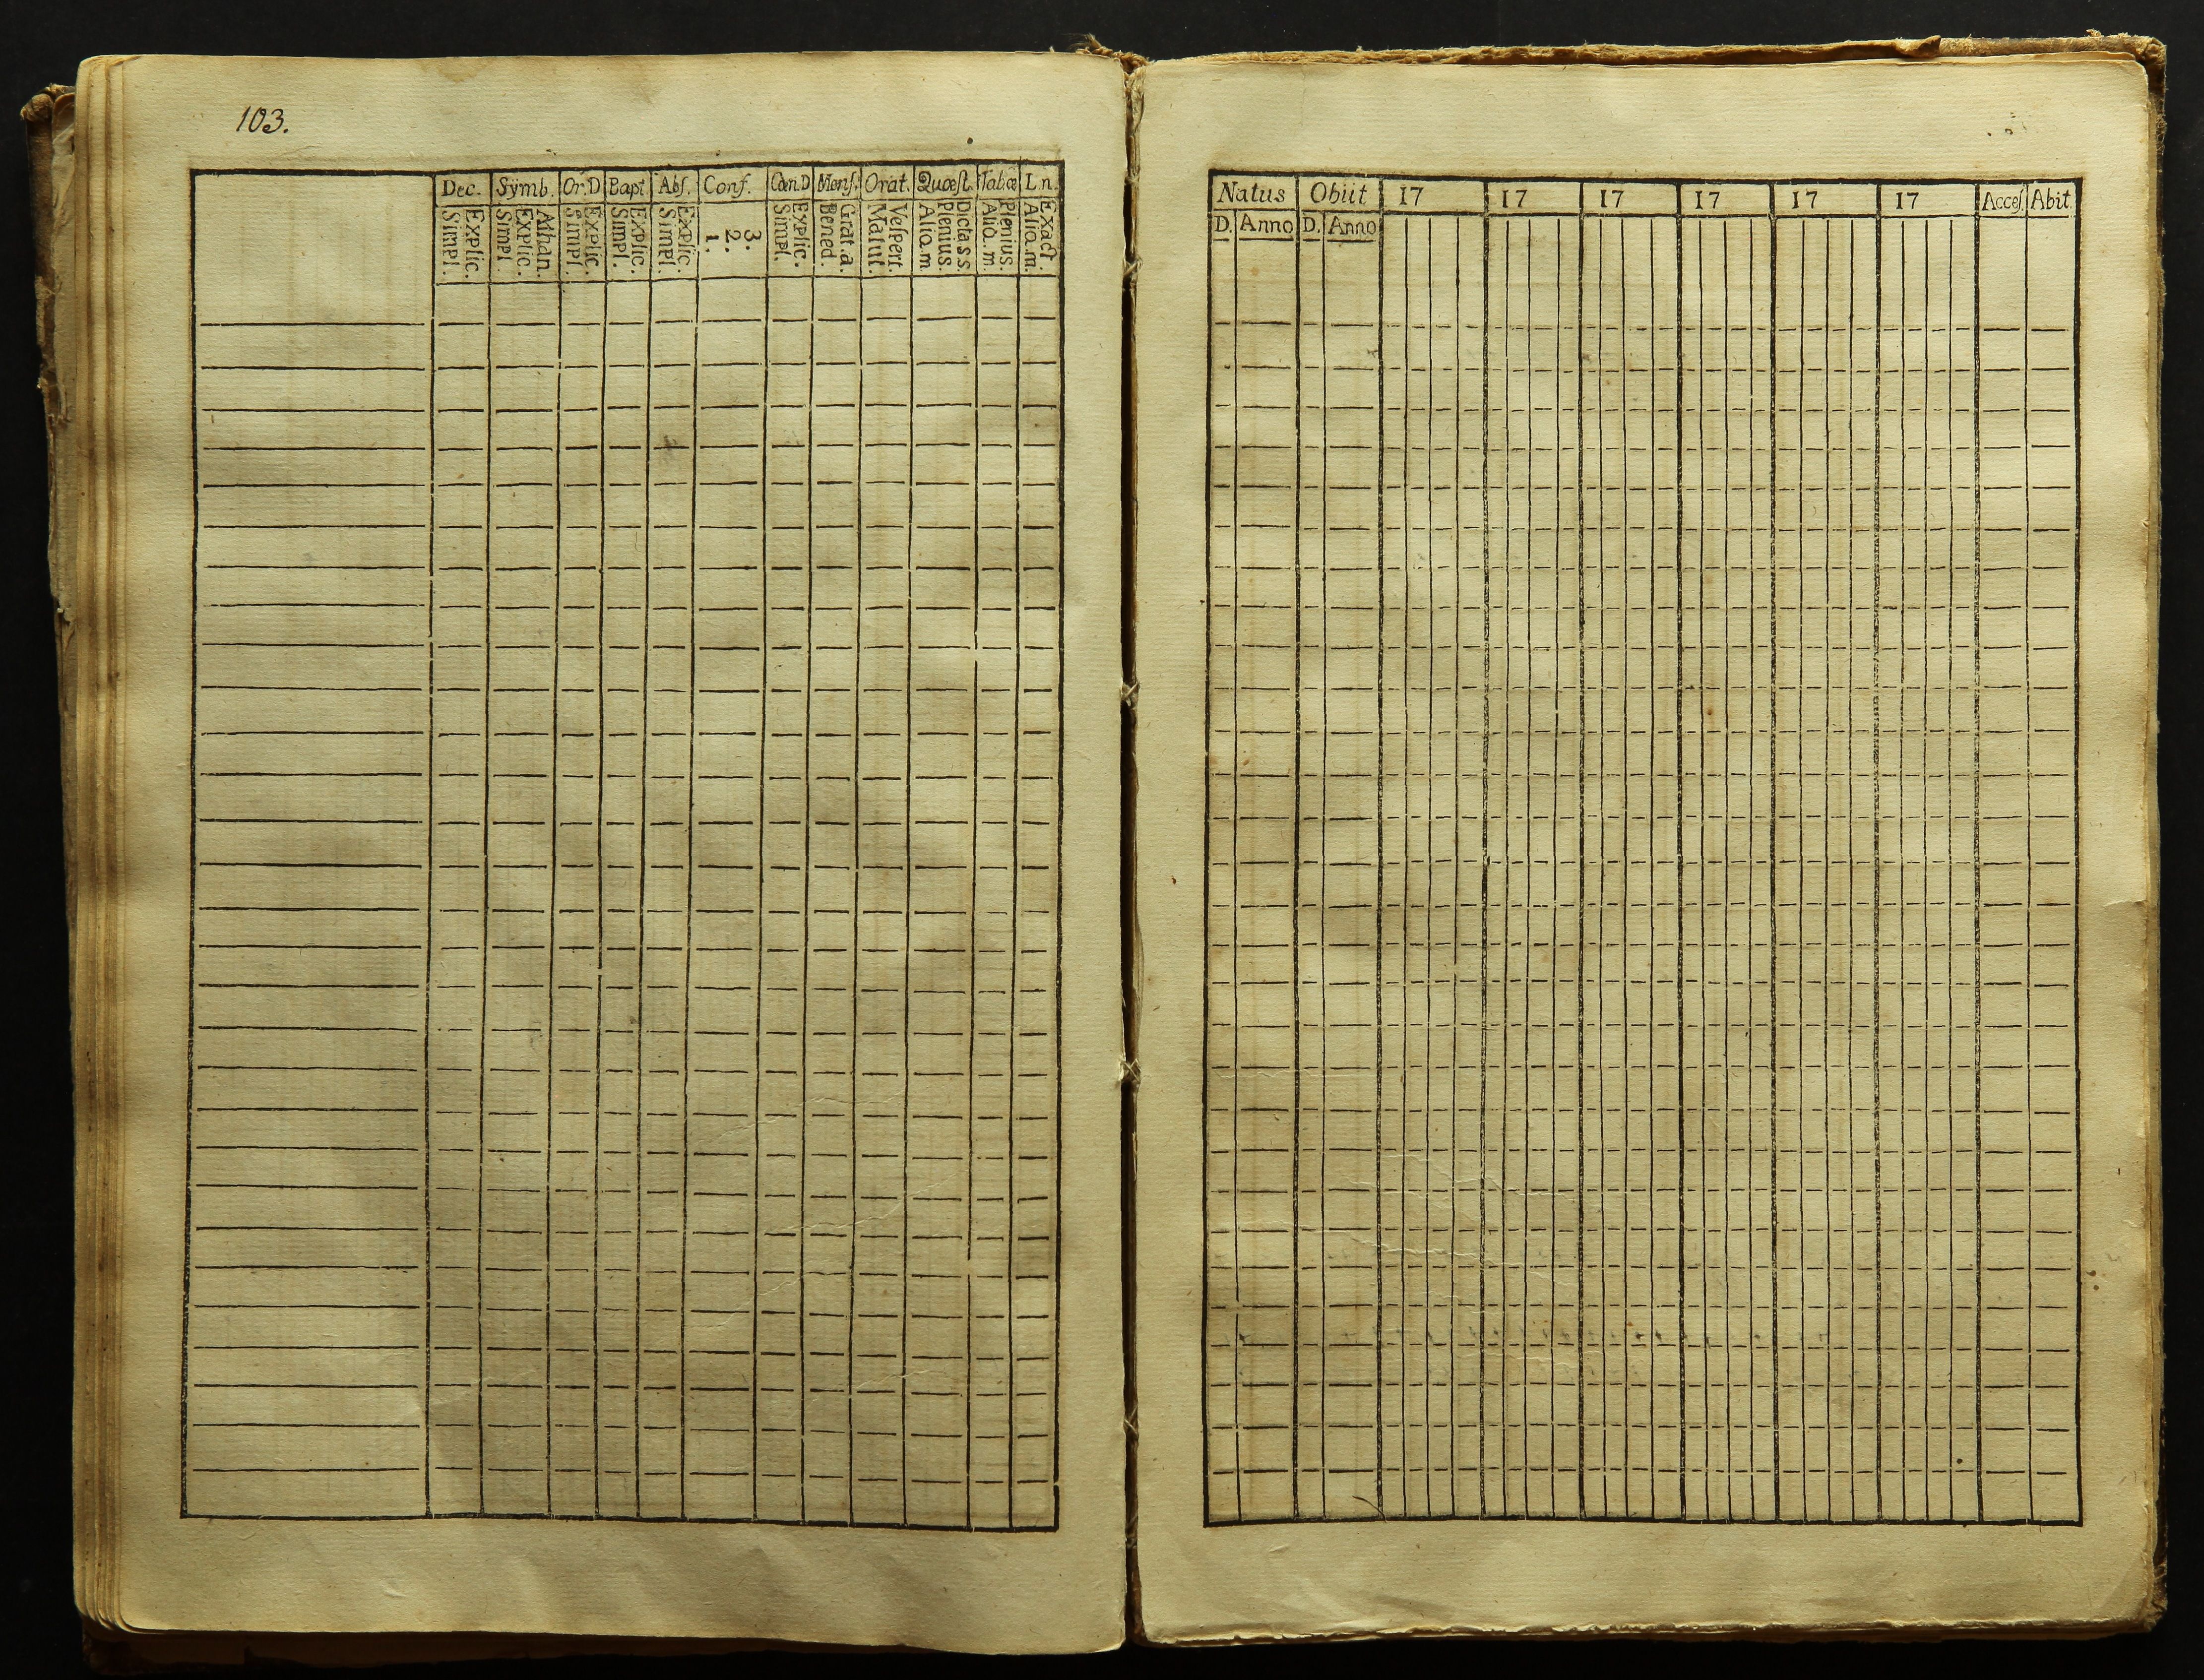 103.
Dec. Sÿmb. Or.D Bapt. Abſ. Conf. Cæn.D Menſ. Orat. Quæſt. Tab.œ L.n.
Explic.
Simpl.
Athan.
Explic.
Simpl.
Explic.
Simpl.
Explic.
Simpl.
Explic.
Simpl.
3.
2.
1.
Explic.
Simpl.
Grat. a.
Bened.
Veſpert.
Matut.
Dicta s s.
Plenius.
Aliq. m
Plenius.
Aliq. m.
Exact.
Aliq. m.
Natus Obiit 17 17 17 17 17 17 Acceſ. Abit
D. Anno D. Anno